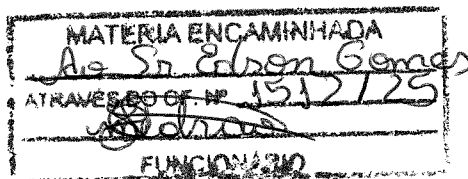 MATERIA ENCAMINHADA
Ao Sr Edson Gomes
ATRAVÉS DO OF. Nº 1512/25
FUNCIONÁRIO